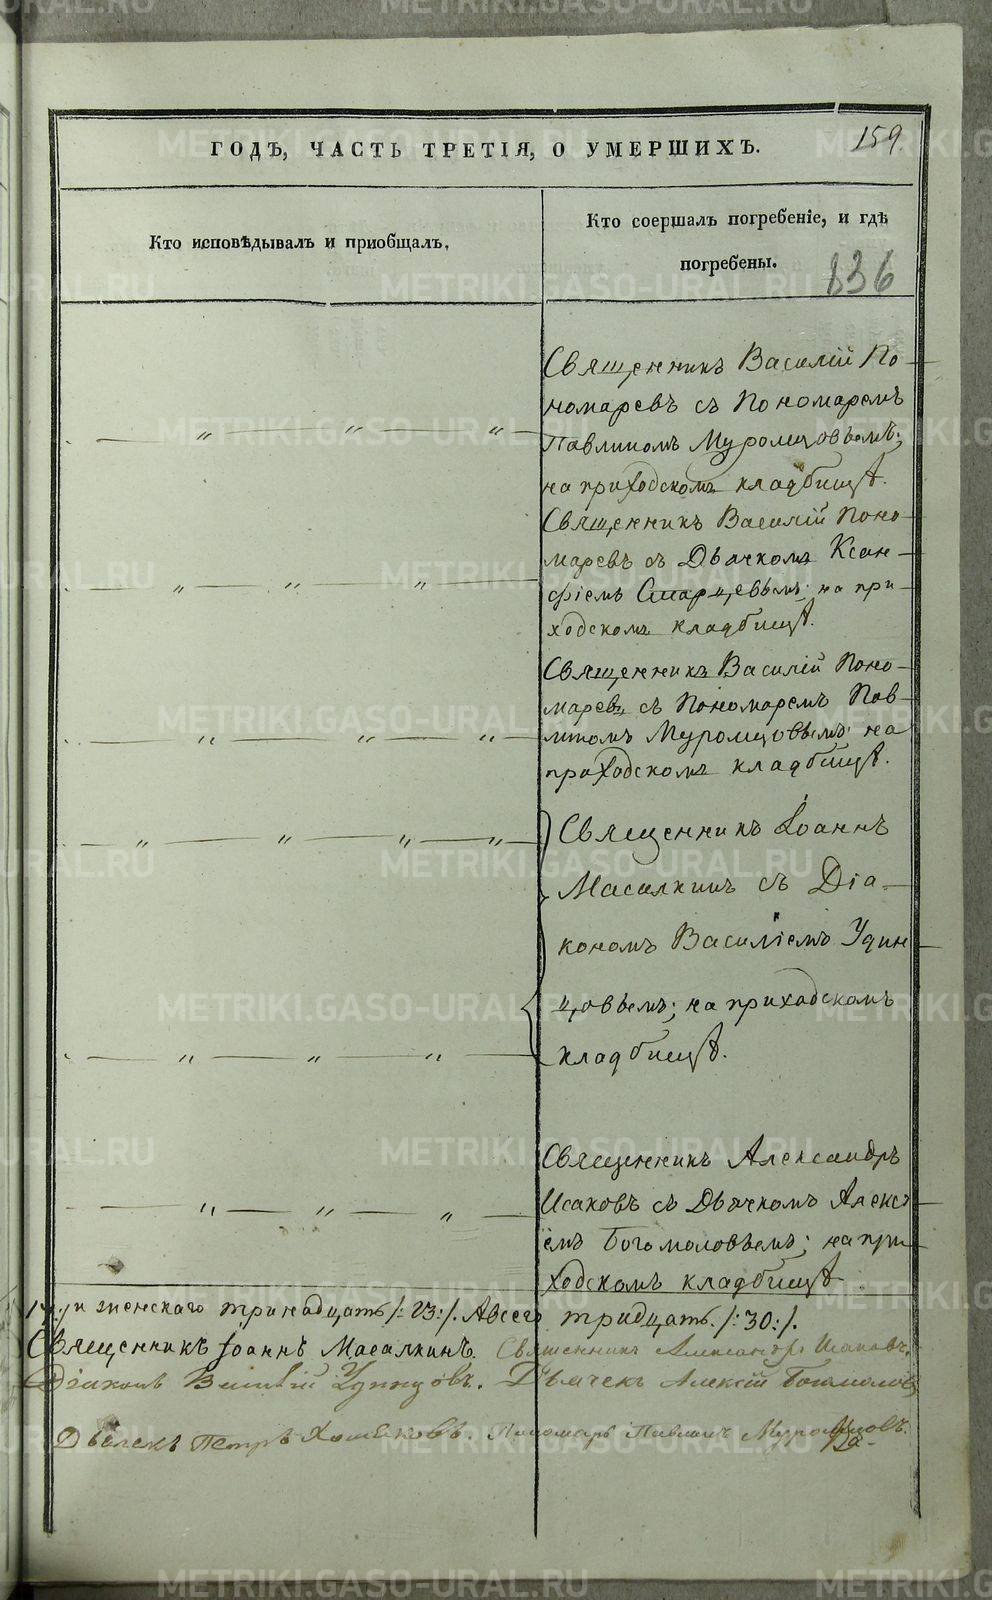 ГОДЪ, ЧАСТЬ ТРЕТІЯ, О УМЕРШИХЪ.
159
Кто исповѣдывалъ и приобщалъ.
Кто соершалъ погребеніе, и гдѣ
погребены.
836
Священникъ Василій По
номаревъ съ Пономаремъ
Павлиномъ Муромцовымъ;
на приходскомъ кладбищѣ.
Священникъ Василій Поно
маревъ съ Дьячкомъ Ксен-
фіемъ Старцевымъ; на при-
ходскомъ кладбищѣ.
Священникъ Василій Поно-
маревъ съ Пономаремъ Пав-
линомъ Муромцовымъ; на
приходскомъ кладбищѣ.
Священникъ Іоаннъ
Масалкинъ съ Діа-
кономъ Василіемъ Удин
цовымъ; на приходскомъ
кладбищѣ.
Священникъ Александръ
Исаковъ съ Дьячкомъ Алексѣ
емъ Богомоловымъ; на при-
ходскомъ кладбищѣ
и женскаго тринадцать /:13:/. А всего тридцать /:30:/.
Священникъ Іоаннъ Масалкинъ. Священникъ Александръ Исаковъ.
Діаконъ Василій Удинцовъ. Дьячекъ Алексій Богомоловъ
Дьячекъ Петръ Пономарь Павлинъ Муромцовъ.
METRIKI.GASO-URAL.RU